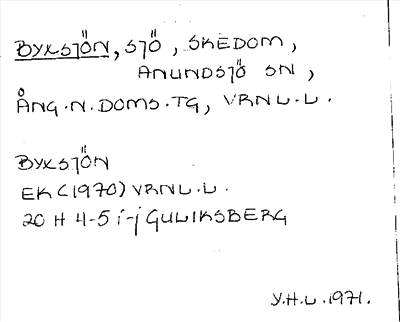 BYXSJÖN, SJÖ, SKEDOM,
ANUNDSJÖ SN,
ÅNG.N.DOMS.TG, VRNL.L.
BYXSJÖN
EK(1970)VRNL.L.
20 H 4-5 i-j GULIKSBERG
Y.H.L.1971.